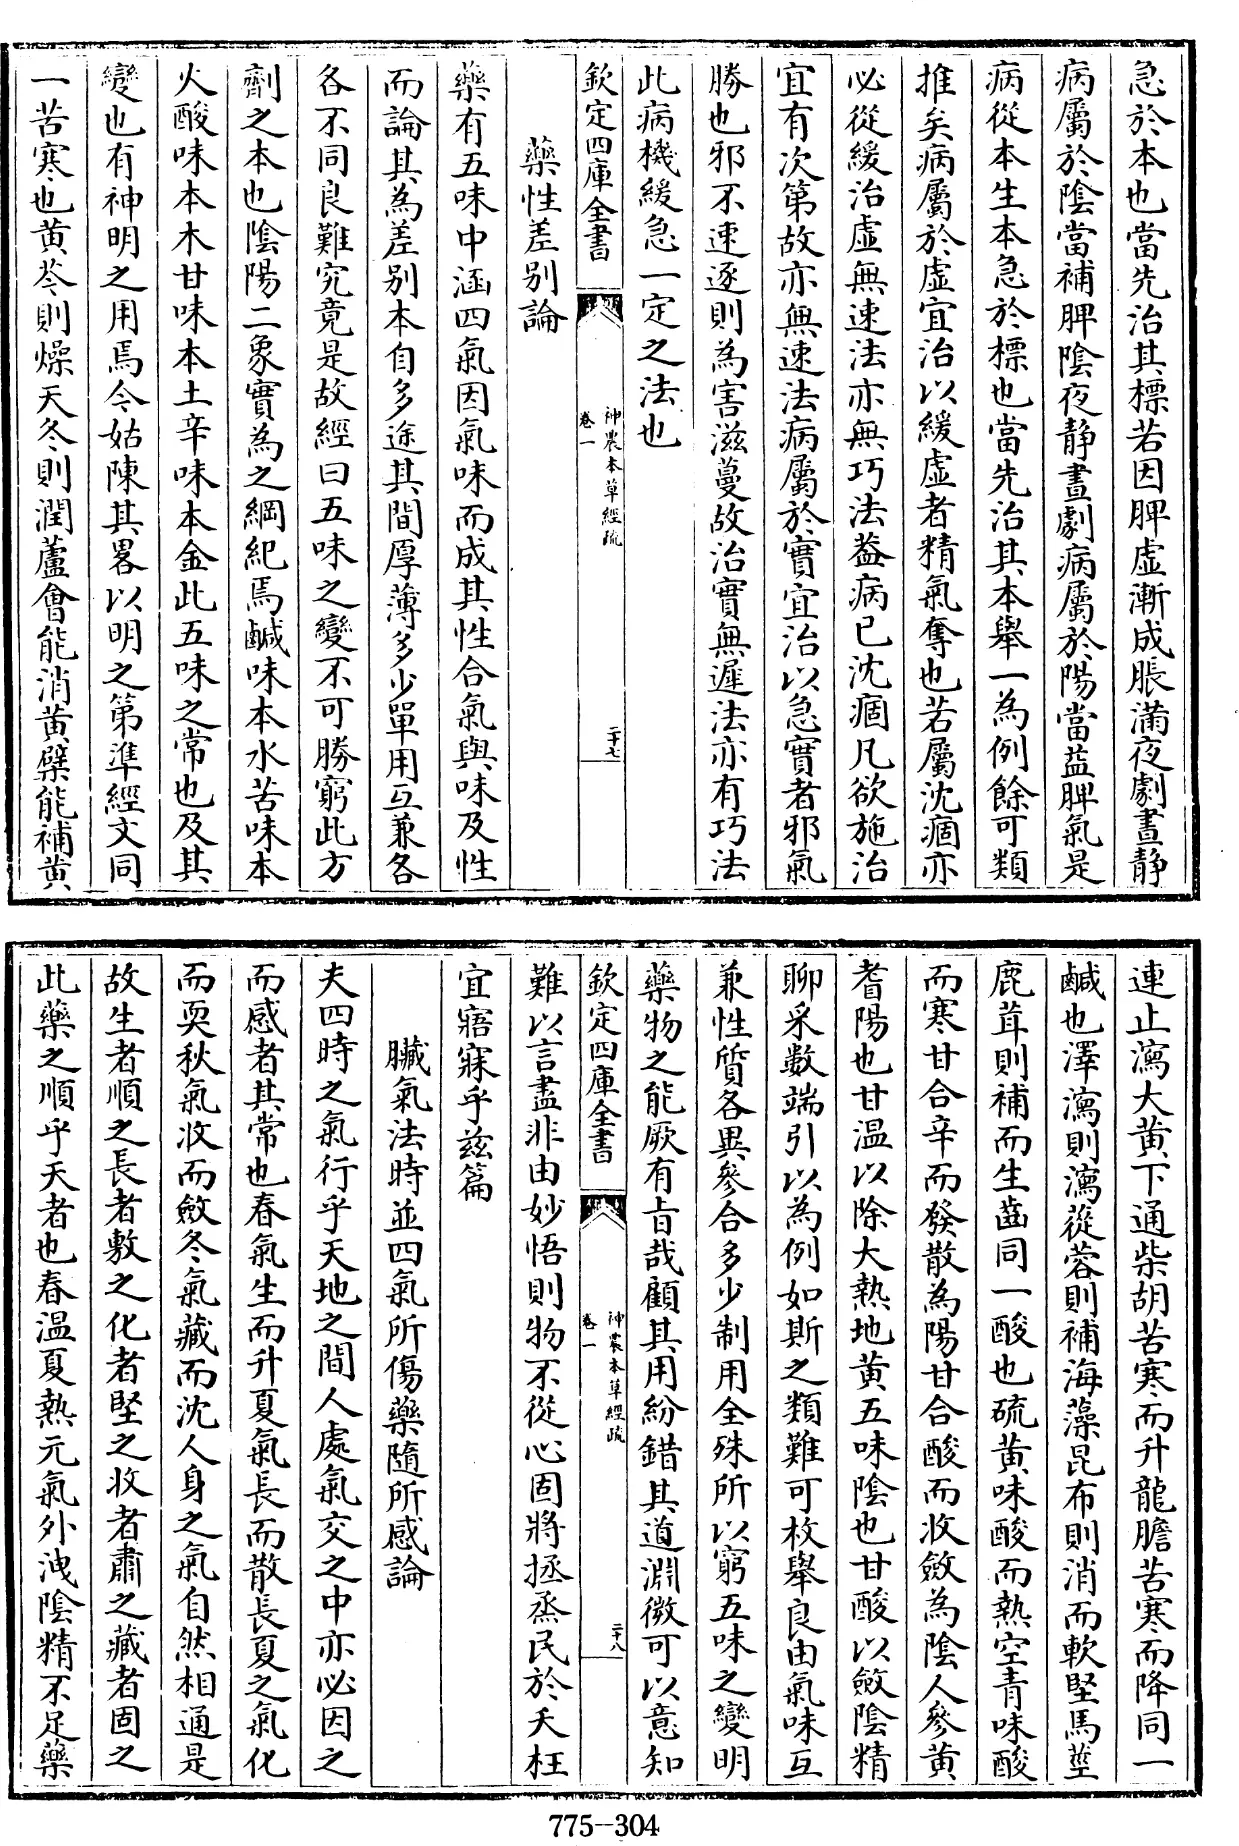 急於本也當先治其標若因脾虛漸成脹滿夜劇晝静
病屬於陰當補脾陰夜静晝劇病屬於陽當益脾氣是
病從本生本急於標也當先治其本舉一為例餘可類
推矣病屬於虛宜治以緩虛者精氣奪也若屬沈痼亦
必從緩治虛無速法亦無巧法葢病已沈痼凡欲施治
宜有次第故亦無速法病屬於實宜治以急實者邪氣
勝也邪不速逐則為害滋蔓故治實無遲法亦有巧法
此病機緩急一定之法也
欽定四庫全書
神農本草經疏
卷一
二十七
藥性差別論
藥有五味中涵四氣因氣味而成其性合氣與味及性
而論其為差別本自多途其間厚薄多少單用互兼各
各不同良難究竟是故經曰五味之變不可勝窮此方
劑之本也陰陽二象實為之綱紀焉鹹味本水苦味本
火酸味本木甘味本土辛味本金此五味之常也及其
變也有神明之用焉今姑陳其畧以明之第準經文同
一苦寒也黄芩則燥天冬則潤蘆薈能消黄檗能補黄
連止瀉大黄下通柴胡苦寒而升龍膽苦寒而降同一
鹹也澤瀉則瀉蓯蓉則補海藻昆布則消而軟堅馬莖
鹿茸則補而生齒同一酸也硫黄味酸而熱空青味酸
而寒甘合辛而發散為陽甘合酸而收斂為陰人參黄
耆陽也甘温以除大熱地黄五味陰也甘酸以斂陰精
聊采數端引以為例如斯之類難可枚舉良由氣味互
兼性質各異參合多少制用全殊所以窮五味之變明
藥物之能厥有旨哉顧其用紛錯其道淵微可以意知
欽定四庫全書
神農本草經疏
卷一
二十八
難以言盡非由妙悟則物不從心固將拯烝民於夭枉
宜寤寐乎兹篇
臟氣法時並四氣所傷藥隨所感論
夫四時之氣行乎天地之間人處氣交之中亦必因之
而感者其常也春氣生而升夏氣長而散長夏之氣化
而耎秋氣收而斂冬氣藏而沈人身之氣自然相通是
故生者順之長者敷之化者堅之收者肅之藏者固之
此藥之順乎天者也春温夏熱元氣外洩陰精不足藥
775-304